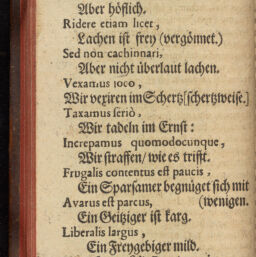 Aber höflich.
Ridere etiam licet,
Lachen ist frey (vergönnet.)
Sed non cachinnari,
Aber nicht überlaut lachen.
Vexamus joco,
Wir vexiren im Schertz[schertzweise.]
Taxamus seriò,
Wir tadeln im Ernst:
Increpamus quomodocunque,
Wir straffen/ wie es trifft.
Frugalis contentus est paucis,
Ein Sparsamer begnüget sich mit
Avarus est parcus, (wenigen.
Ein Geitziger ist karg.
Liberalis largus,
Ein Freygebiger mild.